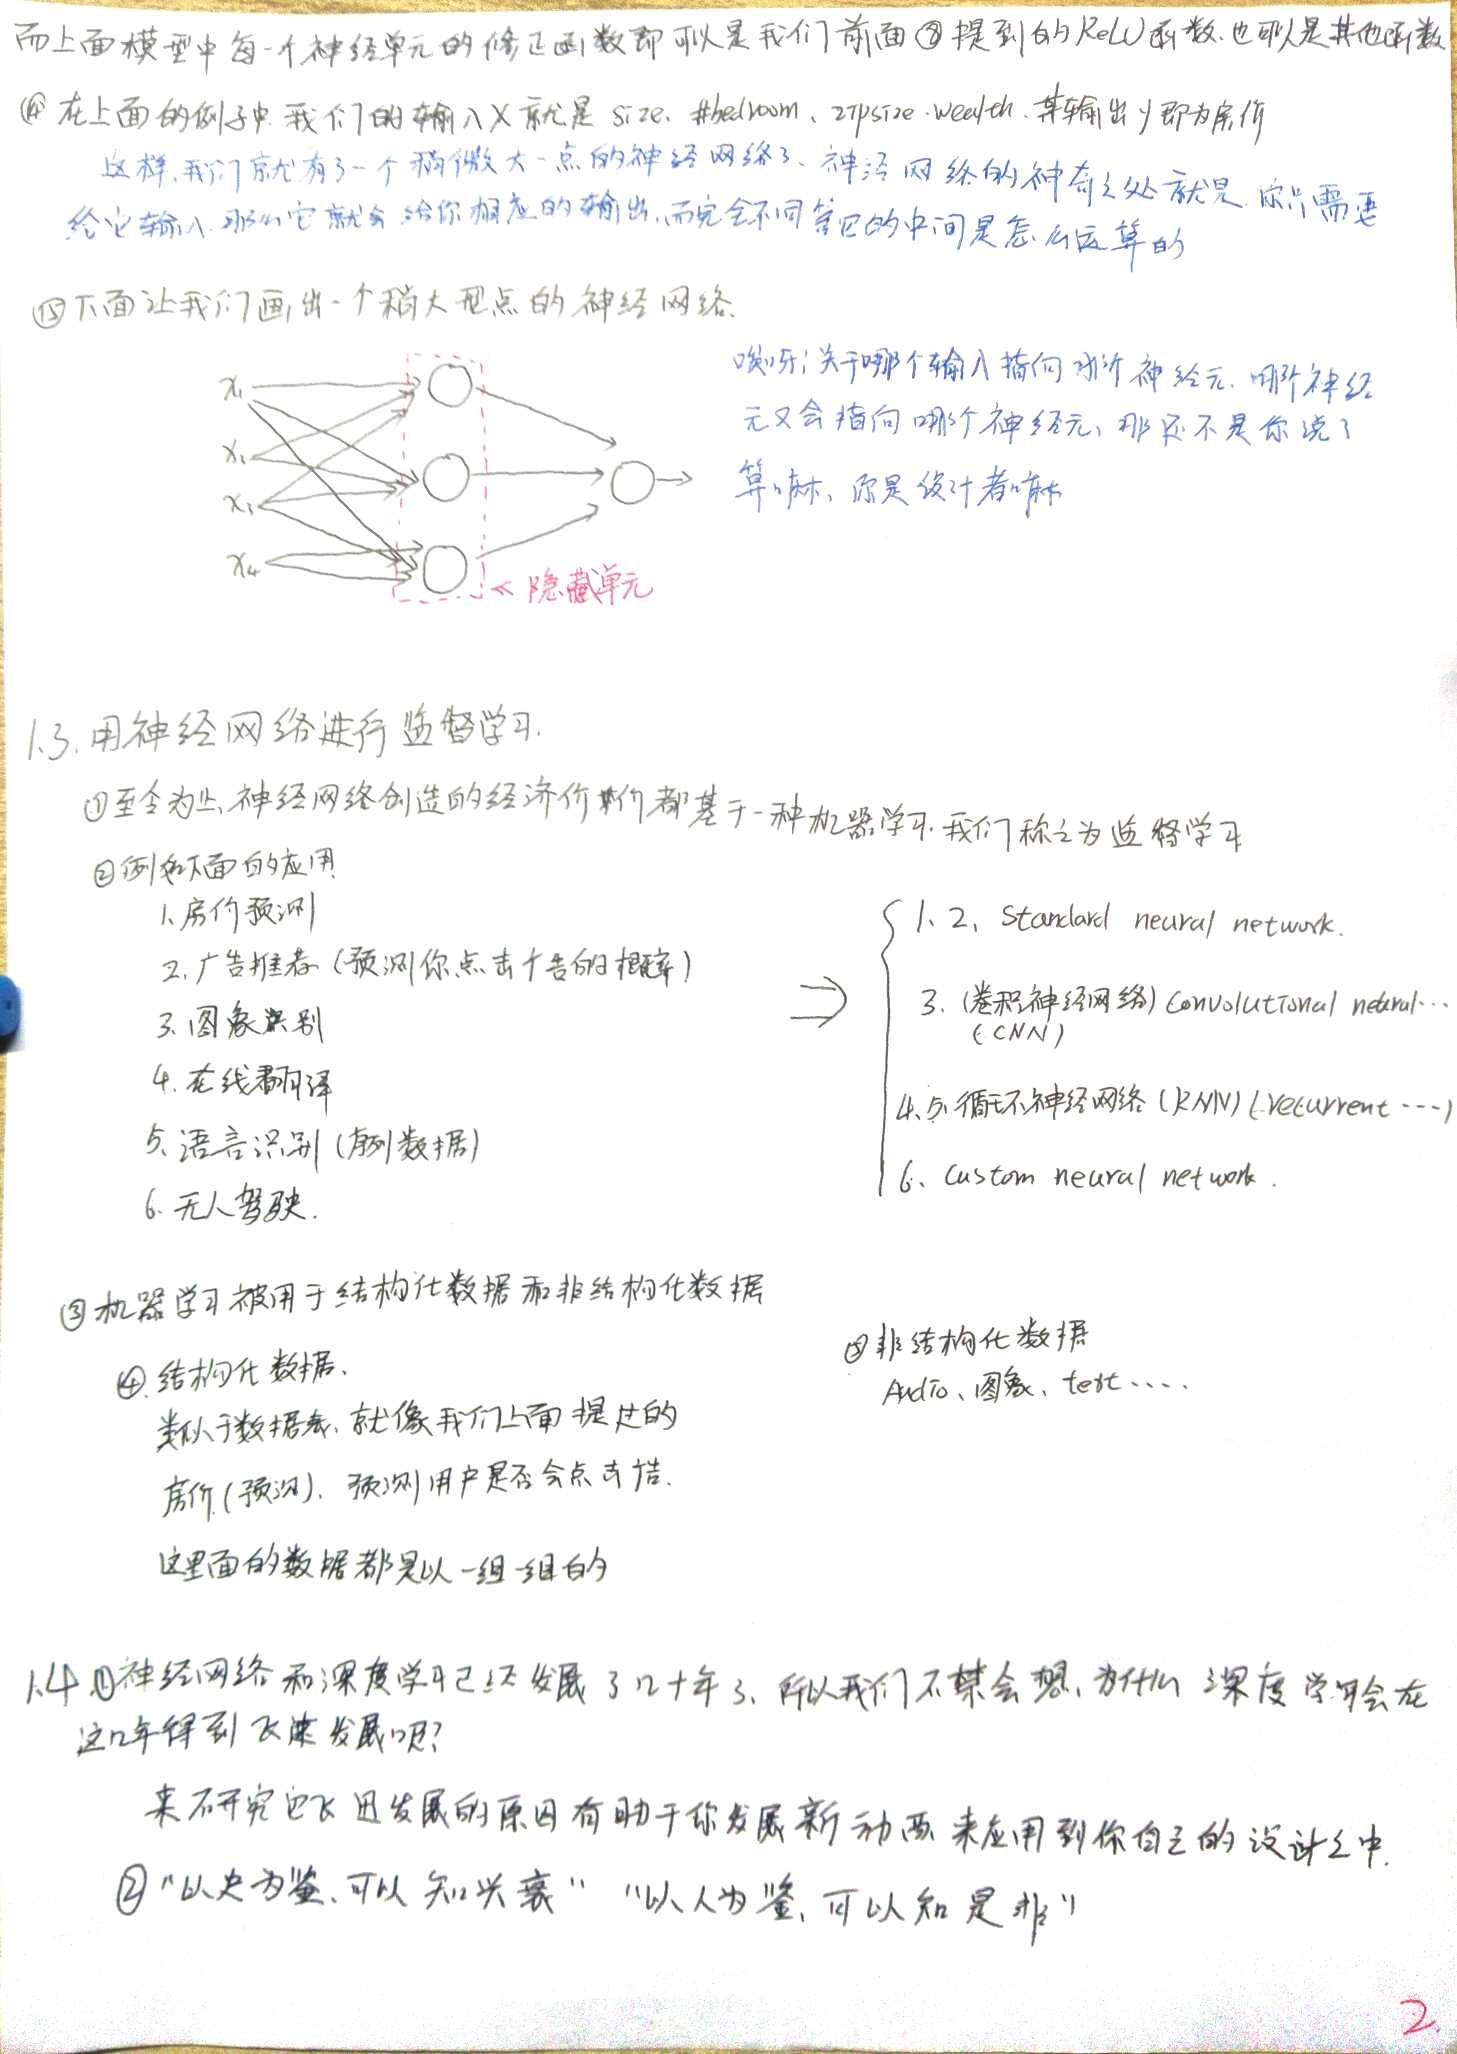 而上面模型中每一个神经单元的修正函数即可以是我们前面⑧提到的ReLU函数、也可以是其他函数
⑭ 在上面的例子中、我们的输入X就是 size、#bedroom、zipsize、wealth、其输出y即为房价
这样、我们就有了一个稍微大一点的神经网络了、神经网络的神奇之处就是、你只需要
给它输入、那么它就会给你相应的输出、而完全不同等它的中间是怎么运算的
⑮ 下面让我们画出一个稍大型点的神经网络.
x₁
x₂
x₃
x₄
← 隐藏单元
哎呀;关于哪个输入指向哪个神经元、哪个神经
元又会指向哪个神经元、那还不是你说了
算嘛、你是设计者嘛
1.3.用神经网络进行监督学习.
①至今为止、神经网络创造的经济价价都基于一种机器学习.我们称之为监督学习
②例如下面的应用
1、房价预测
2、广告推荐(预测你点击广告的概率)
3、图象识别
4.在线翻译
5、语言识别(序列数据)
6.无人驾驶.
⇒
1、2、Standard neural network.
3、(卷积神经网络) Convolutional neural…
(CNN)
4、5、循环神经网络 (RNN) (recurrent ····)
6、Custom neural network .
③机器学习被用于结构化数据和非结构化数据
④.结构化数据、
类似于数据表、就像我们上面提过的
房价(预测)、预测用户是否会点击广告.
这里面的数据都是以一组一组的
⑤非结构化数据
Audio、图象、text ·····
1.4.①神经网络和深度学习已经发展了几十年了、所以我们不禁会想、为什么深度学习会在
这几年得到飞速发展呢?
来研究它飞迅发展的原因有助于你发展新动西来应用到你自己的设计之中.
②"以史为鉴、可以知兴衰" "以人为鉴、可以知是非"
2.